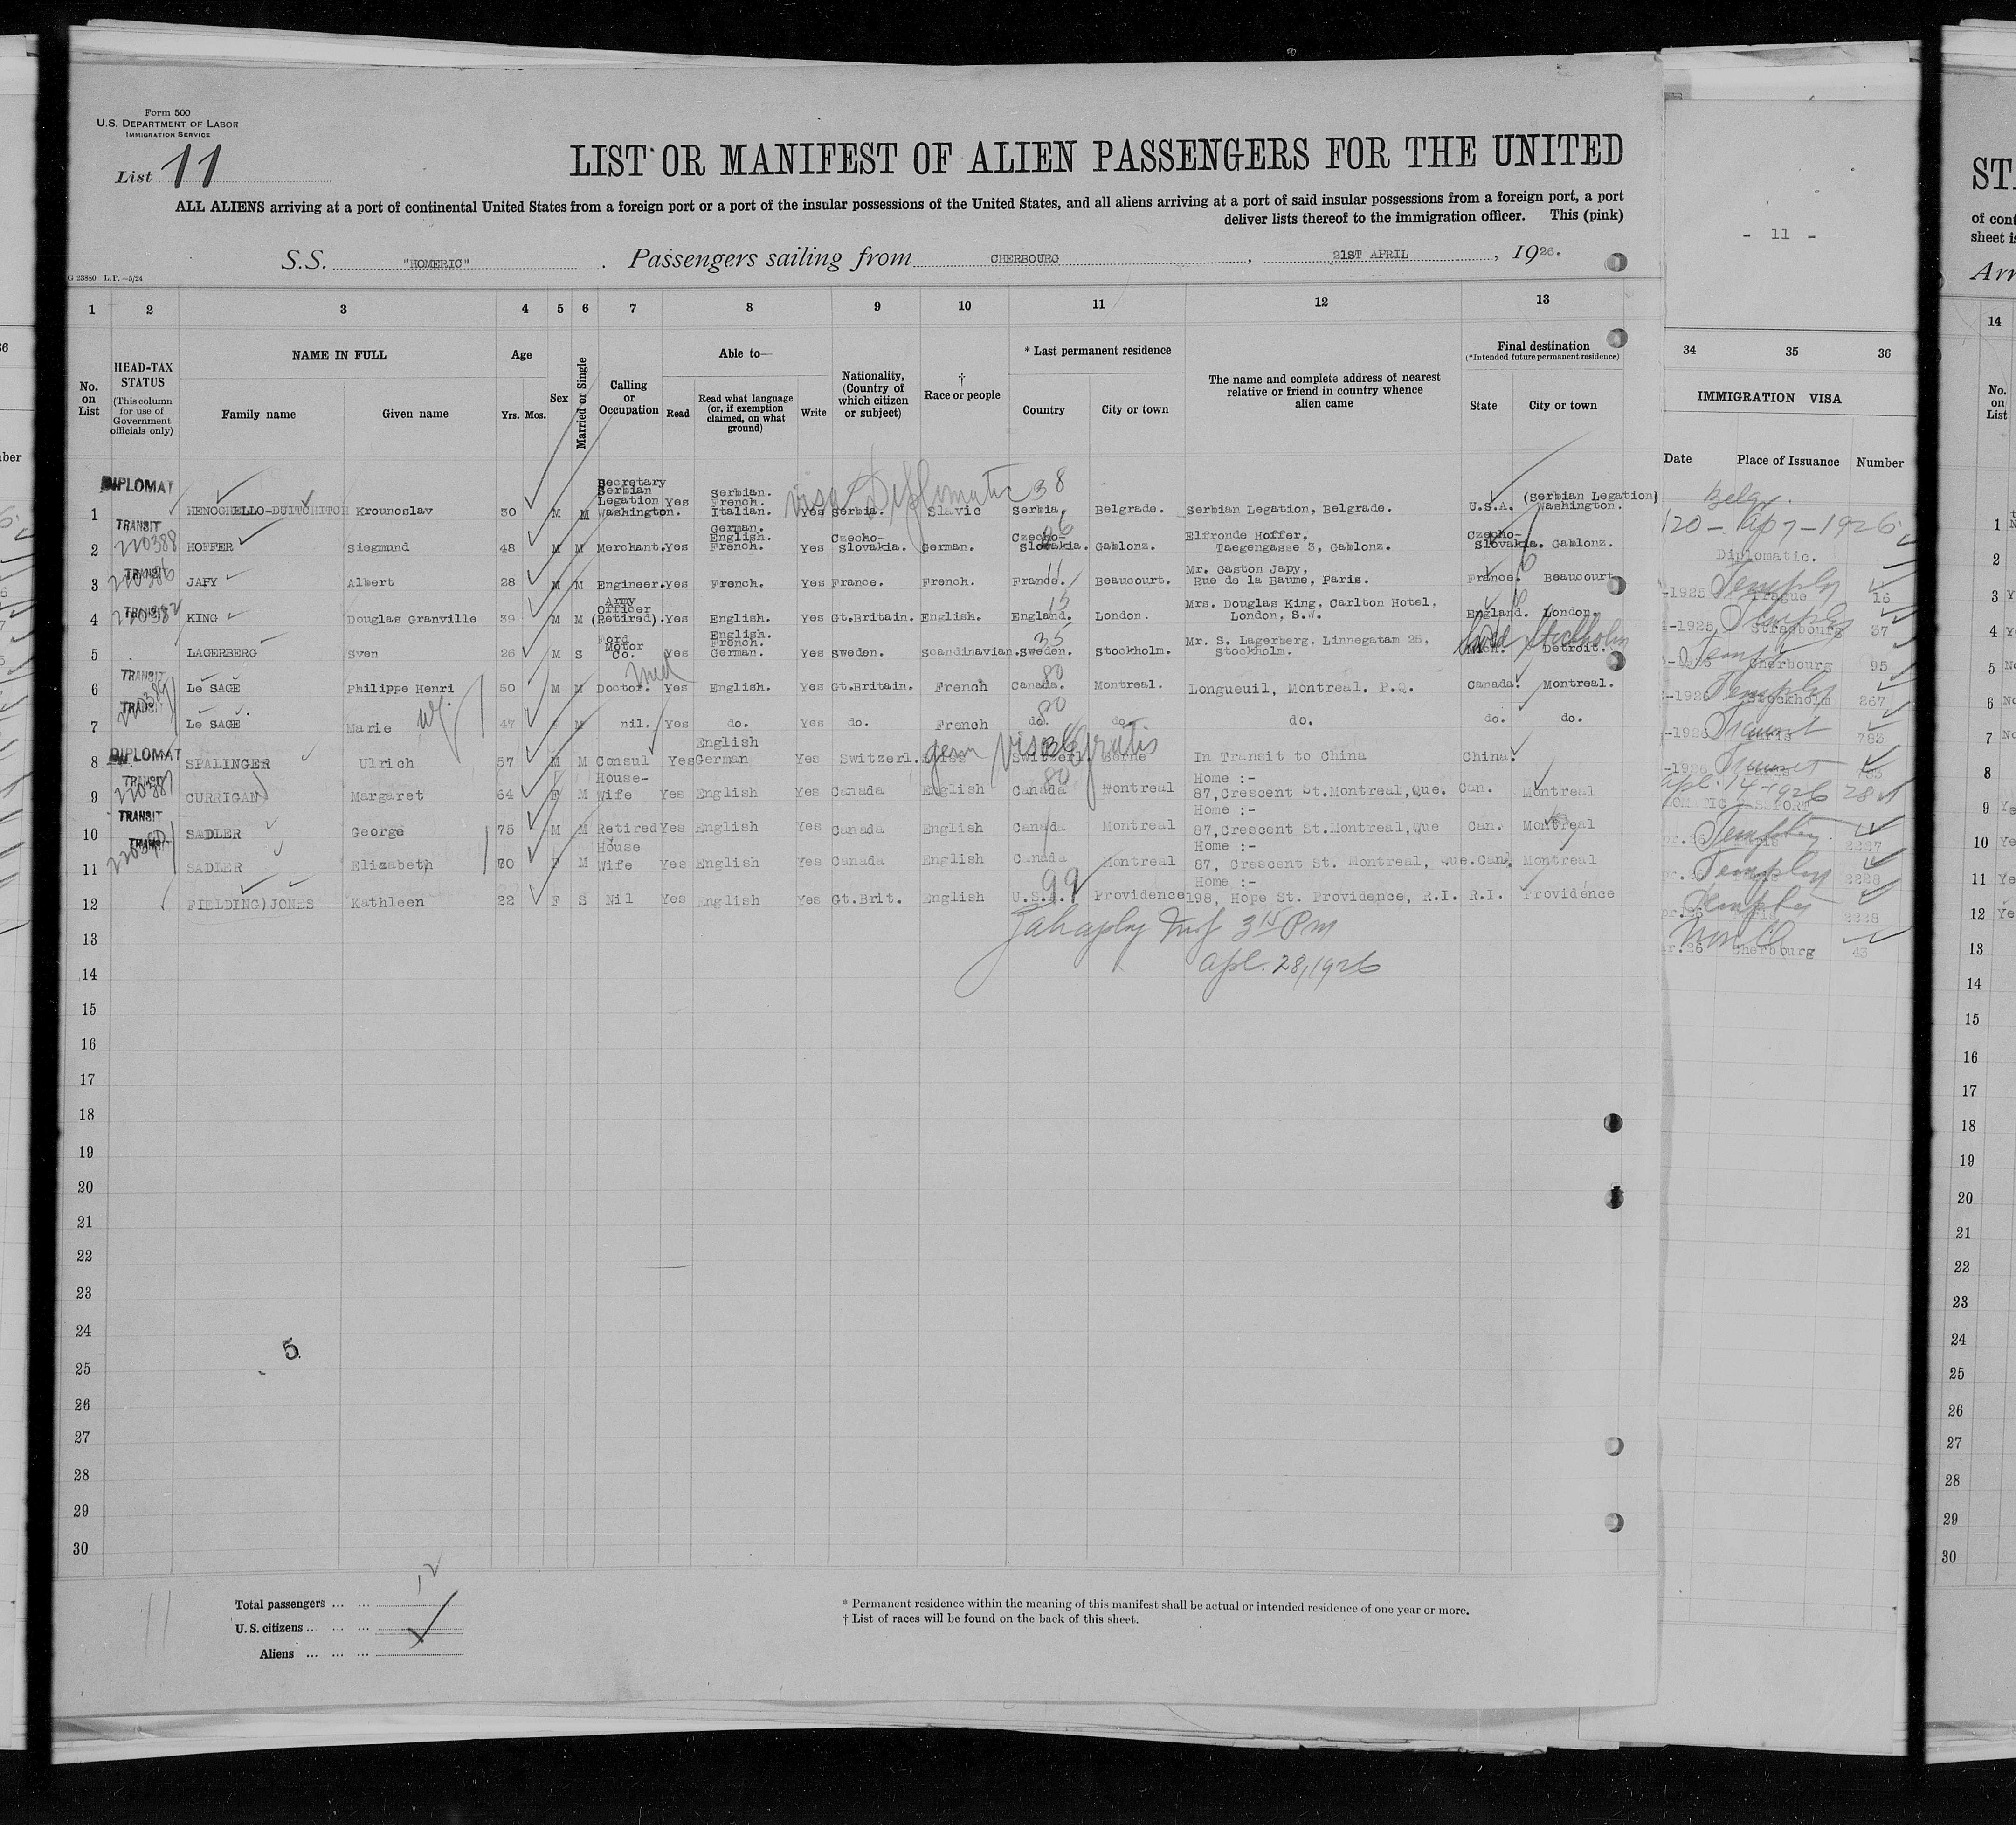 Form 500
U.S. DEPARTMENT OF LABOR
IMMIGRATION SERVICE
List 11
LIST OR MANIFEST OF ALIEN PASSENGERS FOR THE UNITED
ALL ALIENS arriving at a port of continental United States from a foreign port or a port of the insular possessions of the United States, and all aliens arriving at a port of said insular possessions from a foreign port, a port
deliver lists thereof to the immigration officer. This (pink)
S.S. "HOMERIC". Passengers sailing from CHERBOURG, 21ST APRIL, 1926.
G 23880 L.P.—5/24
1 2 3 4 5 6 7 8 9 10 11 12 13
No. on List
HEAD-TAX STATUS
(This column for use of Government officials only)
NAME IN FULL
Family name Given name
Age
Yrs. Mos.
Sex
Married or Single
Calling or Occupation
Able to—
Read
Read what language (or, if exemption claimed, on what ground)
Write
Nationality, (Country of which citizen or subject)
† Race or people
* Last permanent residence
Country City or town
The name and complete address of nearest relative or friend in country whence alien came
Final destination
(*Intended future permanent residence)
State City or town
DIPLOMAT visa Diplomatic 38
1 Krounoslav 30 M M Secretary Serbian Legation Washington. Yes Serbian. French. Italian. Yes Serbia. Slavic Serbia. Belgrade. Serbian Legation, Belgrade. U.S.A. (Serbian Legation) Washington.
TRANSIT 220388
2 HOFFER Siegmund 48 M M Merchant. Yes German. English. French. Yes Czecho-Slovakia. German. Czecho-Slovakia. Gablonz. Elfronde Hoffer, Taegengasse 3, Gablonz. Czecho-Slovakia. Gablonz.
TRANSIT 220386 11
3 JAPY Albert 28 M M Engineer. Yes French. Yes France. French. France. Beaucourt. Mr. Gaston Japy, Rue de la Baume, Paris. France. Beaucourt
TRANSIT
4 KING Douglas Granville 39 M M Army Officer (Retired). Yes English. Yes Gt.Britain. English. England. London. Mrs. Douglas King, Carlton Hotel, London, S.W. England. London.
35
5 LAGERBERG Sven 26 M S Ford Motor Co. Yes English. French. German. Yes Sweden. Scandinavian. Sweden. Stockholm. Mr. S. Lagerberg, Linnegatam 25, Stockholm. Mich. Detroit. Swed Stockholm
TRANSIT med 80
6 Le SAGE Philippe Henri 50 M M Doctor. Yes English. Yes Gt.Britain. French Canada. Montreal. Longueuil, Montreal. P.Q. Canada. Montreal.
TRANSIT 80
7 Le SAGE Marie 47 F M nil. Yes do. Yes do. French do. do. do. do. do.
DIPLOMAT visa gratis
8 SPALINGER Ulrich 57 M M Consul Yes English German Yes Switzerl. Swiss Switzerl. Berne In Transit to China China.
TRANSIT 220387 80
9 CURRIGAN Margaret 64 F M House-Wife Yes English Yes Canada English Canada Montreal Home :- 87,Crescent St.Montreal,Que. Can. Montreal
TRANSIT
10 SADLER George 75 M M Retired Yes English Yes Canada English Canada Montreal Home :- 87,Crescent St.Montreal,Wue Can. Montreal
TRANSIT
11 SADLER Elizabeth 70 F M House Wife Yes English Yes Canada English Canada Montreal Home :- 87, Crescent St. Montreal, Que.Can. Montreal
99
12 FIELDING)JONES Kathleen 22 F S Nil Yes English Yes Gt.Brit. English U.S.A. Providence Home :- 198, Hope St. Providence, R.I. R.I. Providence
13 3 15 Pm
14 Apl. 28, 1926
15
16
17
18
19
20
21
22
23
24
5
25
26
27
28
29
30
12
Total passengers ... ...
U.S. citizens ... ... ...
Aliens ... ... ...
11
* Permanent residence within the meaning of this manifest shall be actual or intended residence of one year or more.
† List of races will be found on the back of this sheet.
- 11 -
34 35 36
IMMIGRATION VISA
Date Place of Issuance Number
120 - Ap 7 - 1926
Diplomatic.
-1925 Prague 16
-1925 Strasbourg 37
Cherbourg 95
-1926 Stockholm 267
-1926 Paris 783
-1926
Apl. 14-1926 28
2227
2229
2228
Cherbourg 43
ST
of cont
sheet is
Arr
14
No. on List
1
2
3
4
5
6
7
8
9
10
11
12
13
14
15
16
17
18
19
20
21
22
23
24
25
26
27
28
29
30